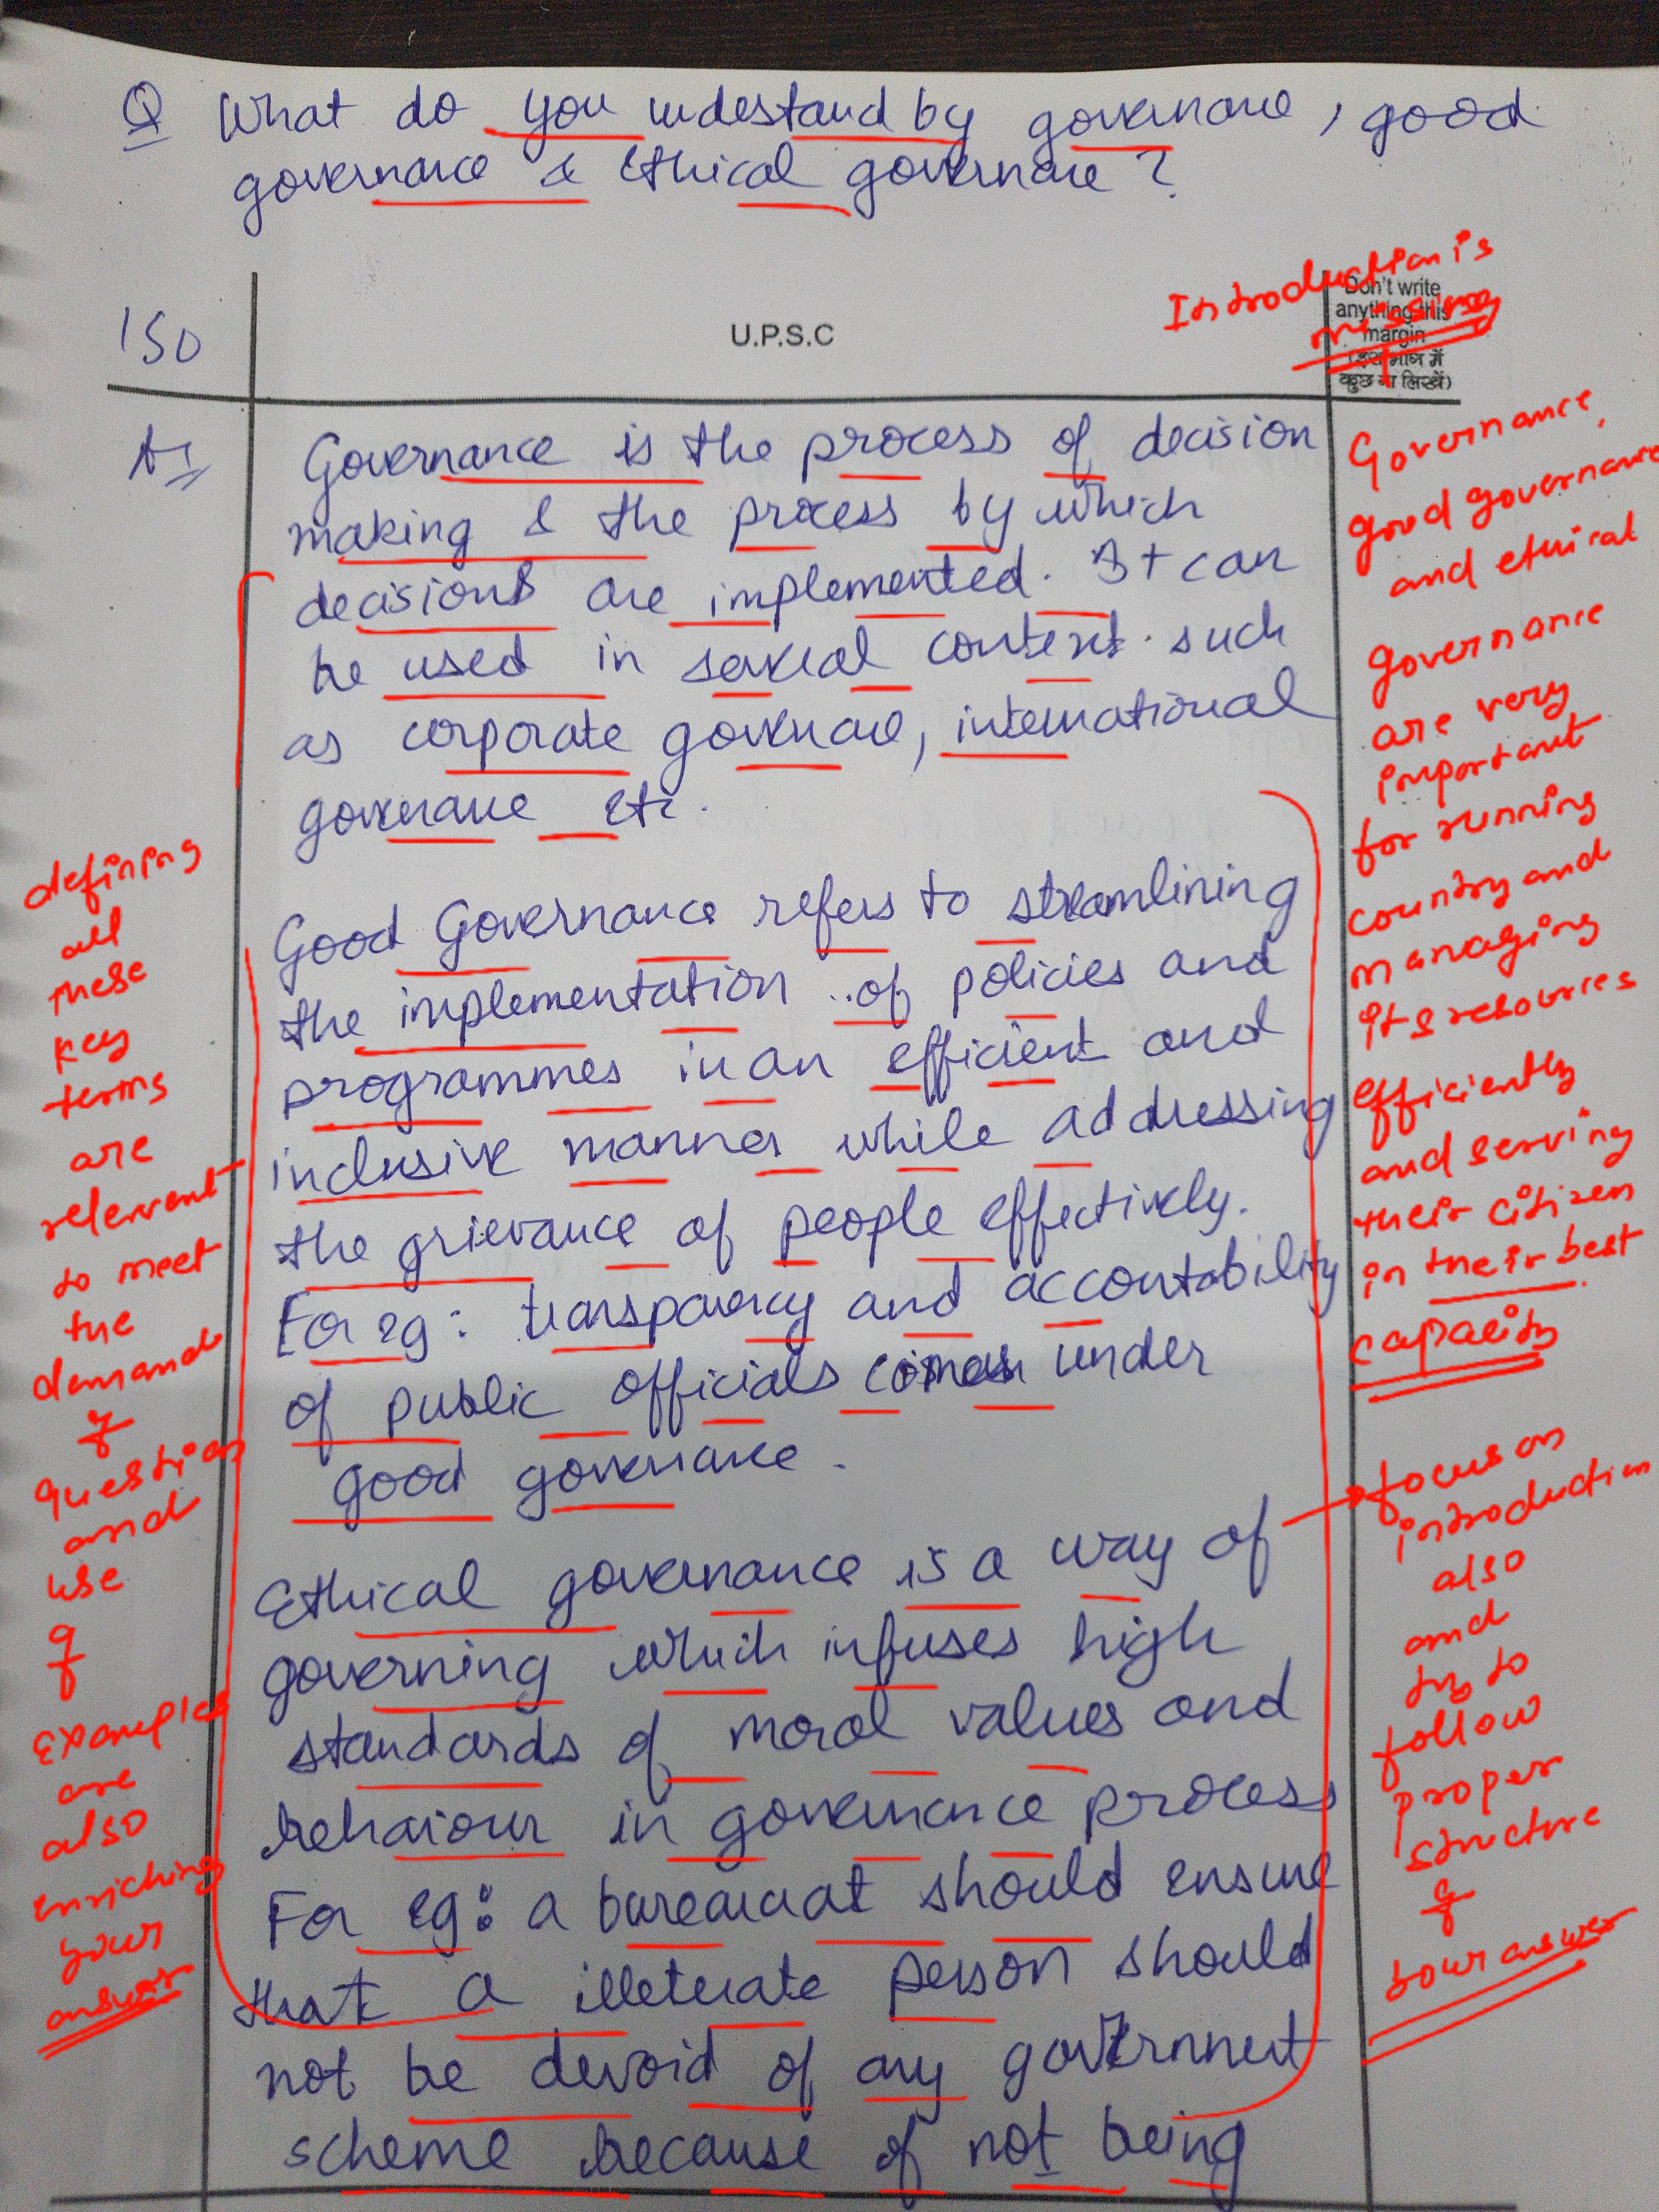 Q What do you understand by governance, good
governance & Ethical governance?
Introduction is
missing
Don't write
anything this
margin
(इस भाग में
कुछ ना लिखें)
150
U.P.S.C
A1
Governance is the process of decision
making & the process by which
decisions are implemented. It can
be used in several context. such
as corporate governance, international
governance etc.
Good Governance refers to streamlining
the implementation of policies and
programmes in an efficient and
inclusive manner while addressing
the grievance of people effectively.
For eg: transparency and accountability
of public officials comes under
good governance.
Ethical governance is a way of
governing which infuses high
standards of moral values and
behaviour in governance process
For eg: a bureaucrat should ensure
that a illeterate person should
not be devoid of any government
scheme because of not being
defining
all
these
key
terms
are
relevant
to meet
the
demand
of
question
and
use
of
examples
are
also
enriching
your
answer
Governance,
good governance
and ethical
governance
are very
important
for running
country and
managing
its resources
efficiently
and serving
their citizen
in their best
capacity
focus on
introduction
also
and
try to
follow
proper
structure
of
your answer